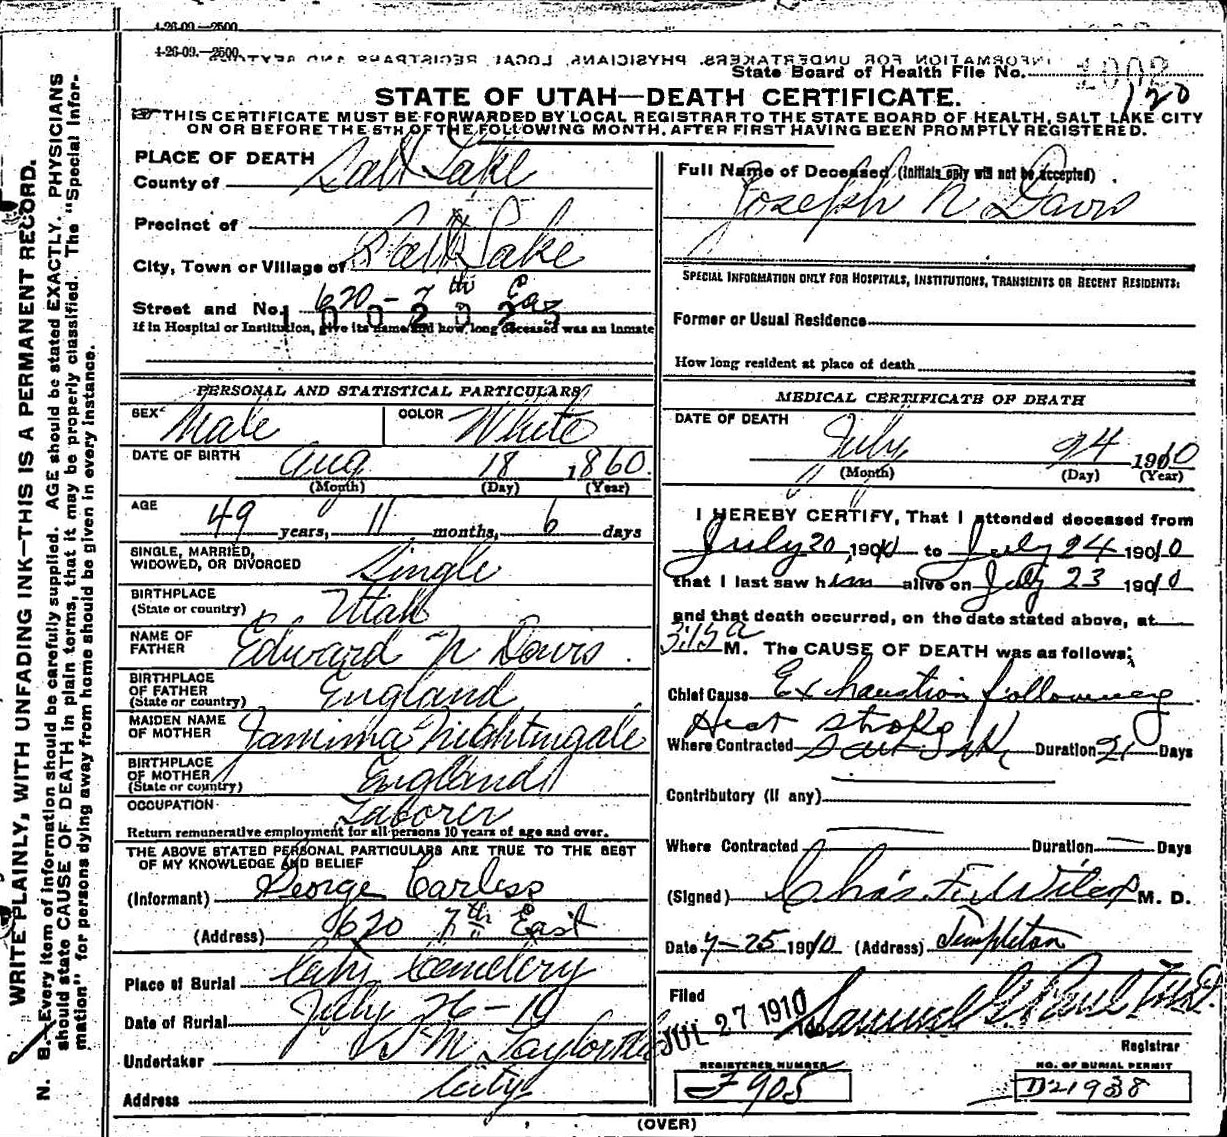 4-26-09.—2500
4-26-09.—2500.
INFORMATION FOR UNDERTAKERS, PHYSICIANS, LOCAL REGISTRARS AND
State Board of Health File No. 1002
120
STATE OF UTAH—DEATH CERTIFICATE.
THIS CERTIFICATE MUST BE FORWARDED BY LOCAL REGISTRAR TO THE STATE BOARD OF HEALTH, SALT LAKE CITY
ON OR BEFORE THE 5TH OF THE FOLLOWING MONTH, AFTER FIRST HAVING BEEN PROMPTLY REGISTERED.
WRITE PLAINLY, WITH UNFADING INK—THIS IS A PERMANENT RECORD.
N. B.—Every item of information should be carefully supplied. AGE should be stated EXACTLY. PHYSICIANS
should state CAUSE OF DEATH in plain terms, that it may be properly classified. The "Special Infor-
mation" for persons dying away from home should be given in every instance.
PLACE OF DEATH
County of Salt Lake
Precinct of
City, Town or Village of Salt Lake
Street and No. 620 - 7th Eas
1002023
If in Hospital or Institution, give its name and how long deceased was an inmate
PERSONAL AND STATISTICAL PARTICULARS
SEX Male COLOR White
DATE OF BIRTH Aug 18 1860.
(Month) (Day) (Year)
AGE 49 years, 11 months, 6 days
SINGLE, MARRIED,
WIDOWED, OR DIVORCED Single
BIRTHPLACE
(State or country) Utah
NAME OF
FATHER Edward N Davis.
BIRTHPLACE
OF FATHER
(State or country) England
MAIDEN NAME
OF MOTHER Jamima Nightingale
BIRTHPLACE
OF MOTHER
(State or country) England
OCCUPATION Laborer
Return remunerative employment for all persons 10 years of age and over.
THE ABOVE STATED PERSONAL PARTICULARS ARE TRUE TO THE BEST
OF MY KNOWLEDGE AND BELIEF
(Informant) George Carless
(Address) 620 7th East
Place of Burial City Cemetery
Date of Burial July 26-10
Undertaker S M Taylor
Address City
Full Name of Deceased (Initials only will not be accepted)
Joseph N Davis
SPECIAL INFORMATION ONLY FOR HOSPITALS, INSTITUTIONS, TRANSIENTS OR RECENT RESIDENTS:
Former or Usual Residence
How long resident at place of death
MEDICAL CERTIFICATE OF DEATH
DATE OF DEATH July 24 1910
(Month) (Day) (Year)
I HEREBY CERTIFY, That I attended deceased from
July 20, 190 to July 24 1910
that I last saw him alive on July 23 1910
and that death occurred, on the date stated above, at
3:15 a M. The CAUSE OF DEATH was as follows:
Chief Cause Exhaustion following
Heat stroke
Where Contracted Salt Lake Duration 21 Days
Contributory (if any)
Where Contracted — Duration — Days
(Signed) Chas. F. Wilcox M. D.
Date 7-25 1910 (Address) Templeton
Filed
JUL 27 1910 Samuel G. Paul
Registrar
REGISTERED NUMBER
F905
NO. OF BURIAL PERMIT
D21938
(OVER)